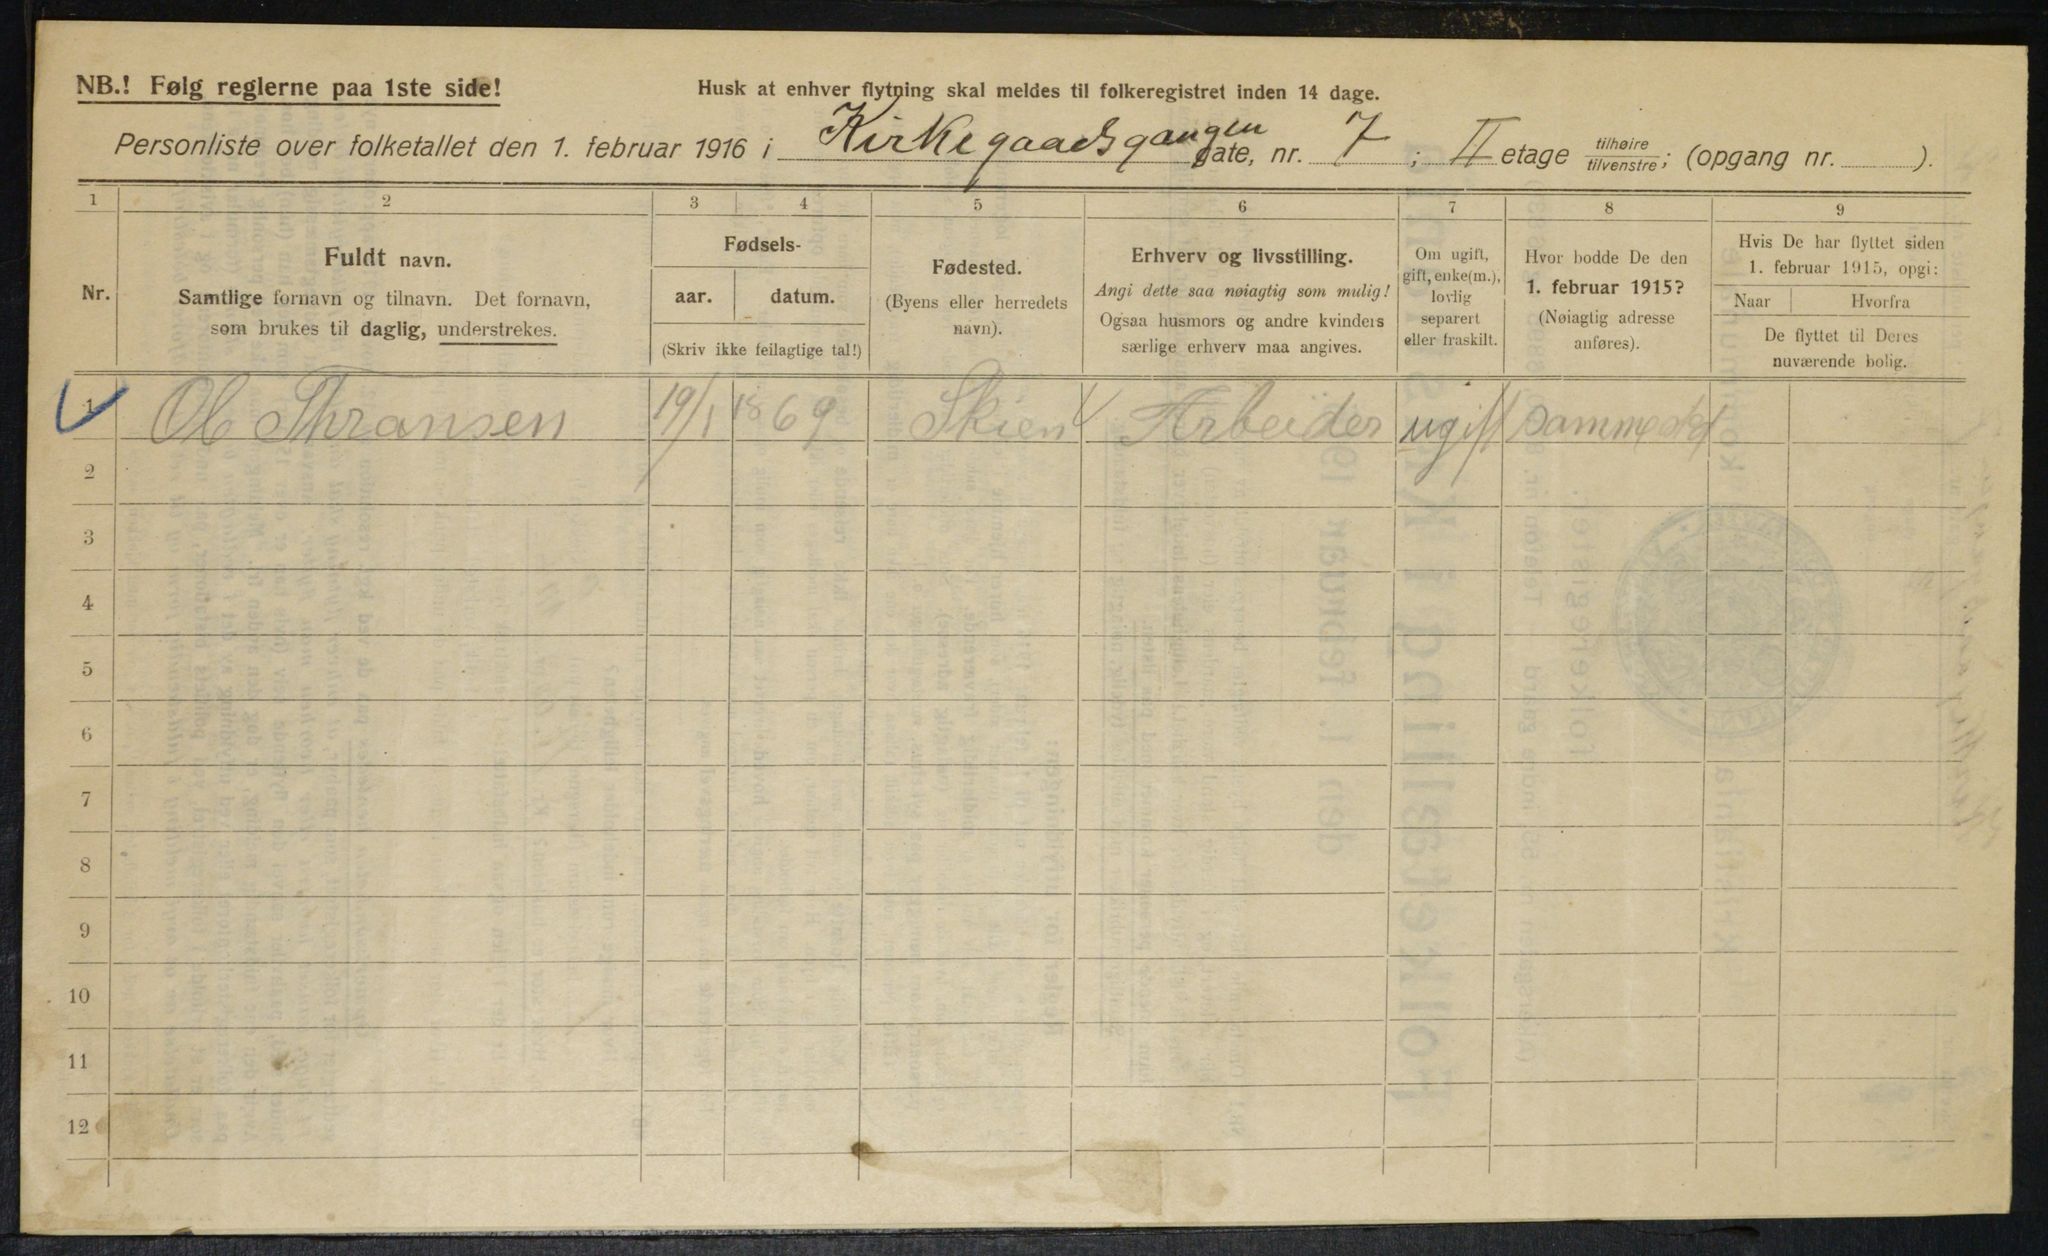 NB.! Følg reglerne paa 1ste side!
Husk at enhver flytning skal meldes til folkeregistret inden 14 dage.
Personliste over folketallet den 1. februar 1916 i Kirkegaardsgangen gate, nr. 7; II etage tilhøire/tilvenstre; (opgang nr. ).
1 2 3 4 5 6 7 8 9
Nr.
Fuldt navn.
Samtlige fornavn og tilnavn. Det fornavn,
som brukes til daglig, understrekes.
Fødsels-
aar. datum.
(Skriv ikke feilagtige tal!)
Fødested.
(Byens eller herredets
navn).
Erhverv og livsstilling.
Angi dette saa nøiagtig som mulig!
Ogsaa husmors og andre kvinders
særlige erhverv maa angives.
Om ugift,
gift, enke(m.),
lovlig
separert
eller fraskilt.
Hvor bodde De den
1. februar 1915?
(Nøiagtig adresse
anføres).
Hvis De har flyttet siden
1. februar 1915, opgi:
Naar Hvorfra
De flyttet til Deres
nuværende bolig.
1 Thransen 19/1 1869 Skien Arbeider ugift Samme
2
3
4
5
6
7
8
9
10
11
12